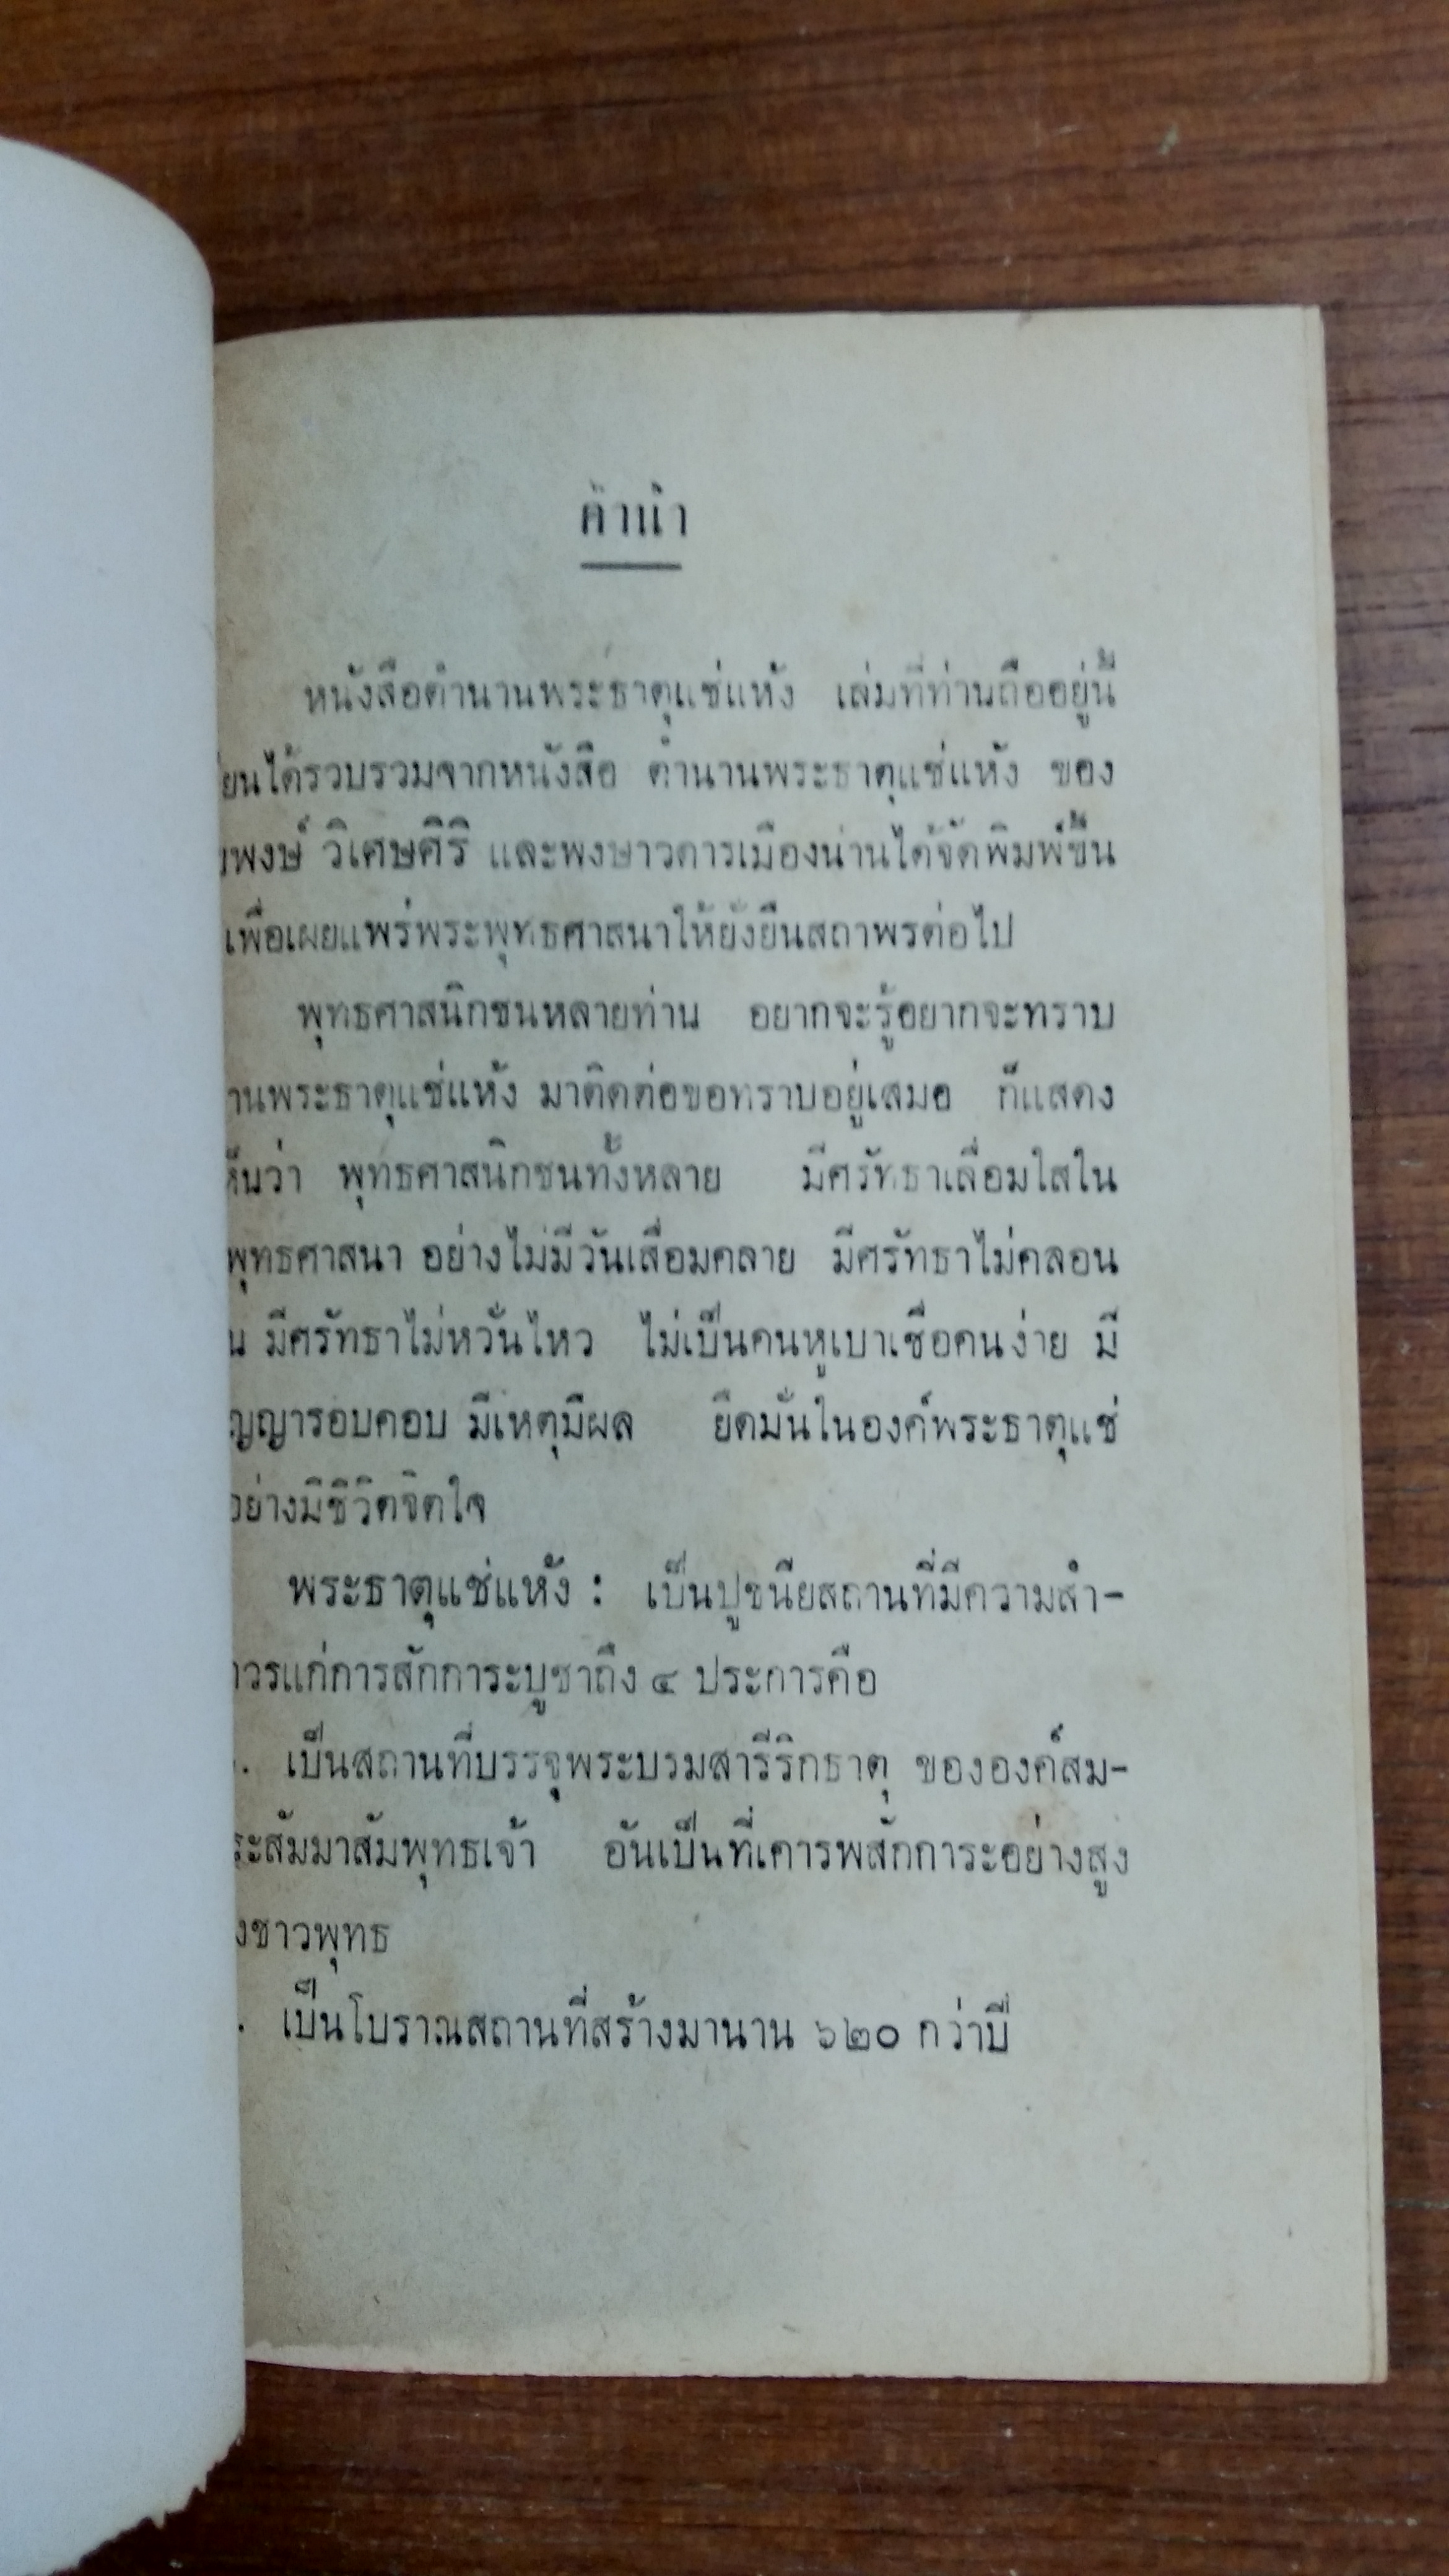 คำนำ
หนังสือตำนานพระธาตุแช่แห้ง เล่มที่ท่านถืออยู่นี้
ยนได้รวบรวมจากหนังสือ ตำนานพระธาตุแช่แห้ง ของ
พงษ์ วิเศษศิริ และพงษาวดารเมืองน่านได้จัดพิมพ์ขึ้น
เพื่อเผยแพร่พระพุทธศาสนาให้ยั่งยืนสถาพรต่อไป
พุทธศาสนิกชนหลายท่าน อยากจะรู้อยากจะทราบ
านพระธาตุแช่แห้ง มาติดต่อขอทราบอยู่เสมอ ก็แสดง
ห็นว่า พุทธศาสนิกชนทั้งหลาย มีศรัทธาเลื่อมใสใน
พุทธศาสนา อย่างไม่มีวันเสื่อมคลาย มีศรัทธาไม่คลอน
น มีศรัทธาไม่หวั่นไหว ไม่เป็นคนหูเบาเชื่อคนง่าย มี
ัญญารอบคอบ มีเหตุมีผล ยึดมั่นในองค์พระธาตุแช่
อย่างมีชีวิตจิตใจ
พระธาตุแช่แห้ง : เป็นปูชนียสถานที่มีความสำ-
วรแก่การสักการะบูชาถึง ๔ ประการคือ
. เป็นสถานที่บรรจุพระบรมสารีริกธาตุ ขององค์สม-
ระสัมมาสัมพุทธเจ้า อันเป็นที่เคารพสักการะอย่างสูง
งชาวพุทธ
. เป็นโบราณสถานที่สร้างมานาน ๖๒๐ กว่าปี